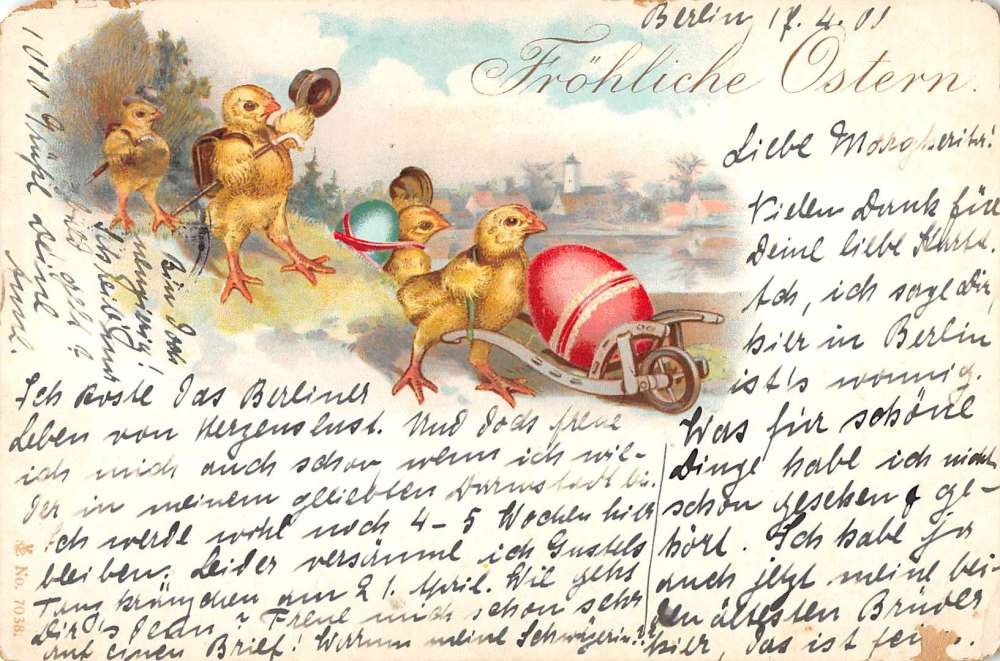 Berlin, 17. 4. 01
Fröhliche Ostern.
Liebe Margherita!
Vielen Dank für
Deine liebe Karte.
Ach, ich sage Dir,
hier in Berlin
ist's wonnig.
Was für schöne
Dinge habe ich nicht
schon gesehen & ge-
hört. Ich habe ja
auch jetzt meine bei-
den ältesten Brüder
hier, das ist fein.
Ich koste das Berliner
Leben von Herzenslust. Und doch freue
ich mich auch schon, wenn ich wie-
der in meinem geliebten Darmstadt bin.
Ich werde wohl noch 4-5 Wochen hier
bleiben. Leider versäume ich Gustels
Tanzkränzchen am 21. April. Wie gehts
Dir's denn? Freue mich schon sehr
auf einen Brief! Warum meine Schwägerin??
Bin doch
neugierig!
Ich bleibe nur
1000 Grüße Deine
No. 7038.